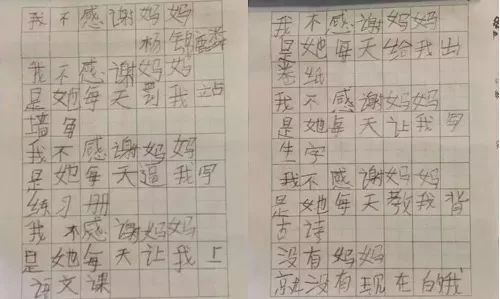 我不感谢妈妈
杨锦
我不感谢妈妈
是她每天罚我站
墙角
我不感谢妈妈
是她每天逼我写
练习册
我不感谢妈妈
是她每天让我上
语文课
我不感谢妈妈
是她每天给我出
卷纸
我不感谢妈妈
是她每天让我写
生字
我不感谢妈妈
是她每天教我背
古诗
没有妈妈
就没有现在的我